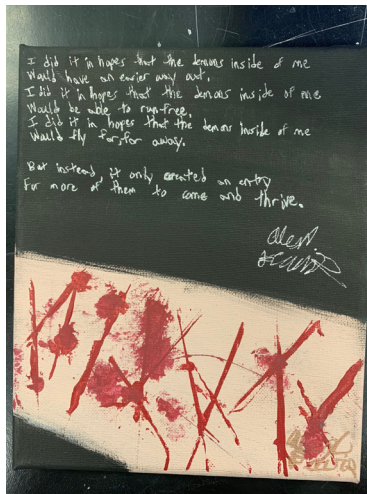 I did it in hopes that the demons inside of me
would have an easier way out.
I did it in hopes that the demons inside of me
would be able to run free.
I did it in hopes that the demons inside of me
would fly far, far away.
But instead, it only created an entry
for more of them to come and thrive.